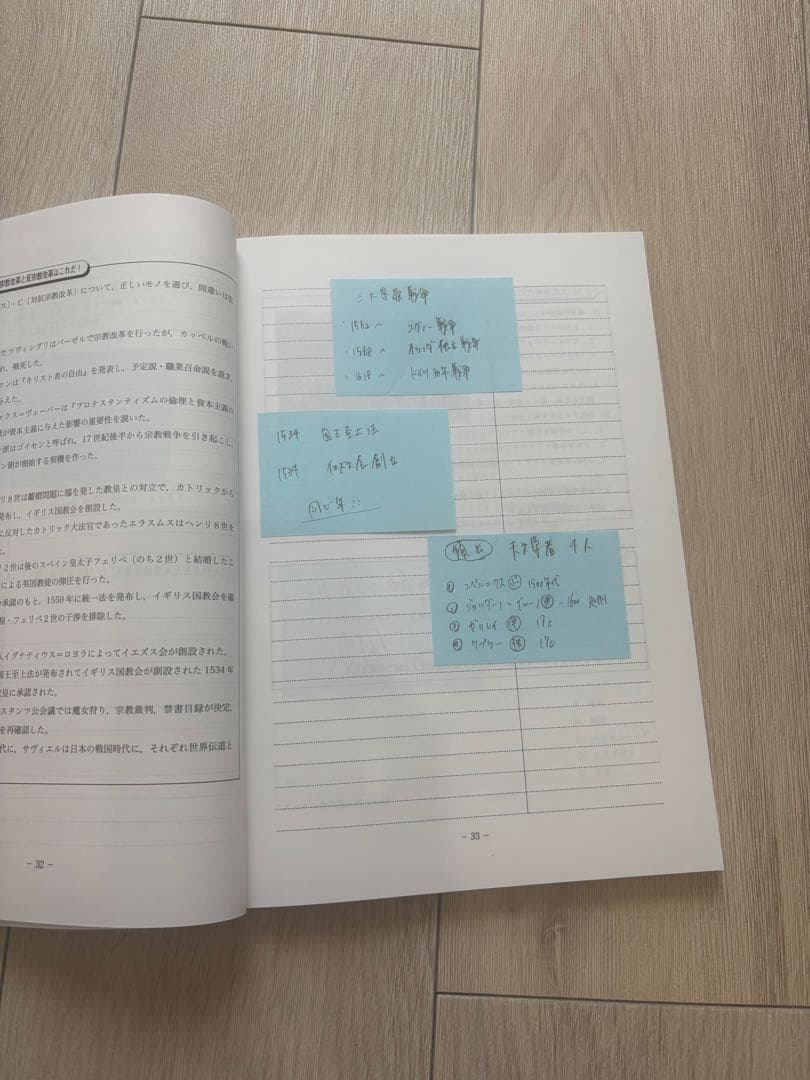 宗教改革と反宗教改革はこれだ!
ス)・C〔対抗宗教改革〕について,正しいモノを選び,間違いは直
たツヴィングリはバーゼルで宗教改革を行ったが,カッペルの戦い
れ,戦死した。
ァンは『キリスト者の自由』を発表し,予定説・職業召命説を説き,
与えた。
ックス=ヴェーバーは『プロテスタンティズムの倫理と資本主義の
説が資本主義に与えた影響の重要性を説いた。
派はゴイセンと呼ばれ,17世紀後半から宗教戦争を引き起こし,
ン朝が創始する契機を作った。
リ8世は離婚問題に端を発した教皇との対立で,カトリックから
発布し,イギリス国教会を創設した。
に反対したカトリック大法官であったエラスムスはヘンリ8世を
た。
リ2世は後のスペイン皇太子フェリペ(のち2世)と結婚したこ
による英国教徒の弾圧を行った。
の承認のもと,1559年に統一法を発布し,イギリス国教会を確
皇・フェリペ2世の干渉を排除した。
人イグナティウス=ロヨラによってイエズス会が創設された。
国王至上法が発布されてイギリス国教会が創設された1534年
教皇に承認された。
スタンツ公会議では魔女狩り,宗教裁判,禁書目録が決定,
を再確認した。
代に,サヴィエルは日本の戦国時代に,それぞれ世界伝道と
- 32 -
三大宗教戦争
・1562〜 ユグノー戦争
・1568〜 オランダ独立戦争
・1618〜 ドイツ30年戦争
1534 国王至上法
1534 イエズス会創立
同じ年!!
頻出 天文学者 4人
① コペルニクス 1500年代
② ジョルダーノ・ブルーノ 〜1600 処刑
③ ガリレイ 17c
④ ケプラー 17c
- 33 -